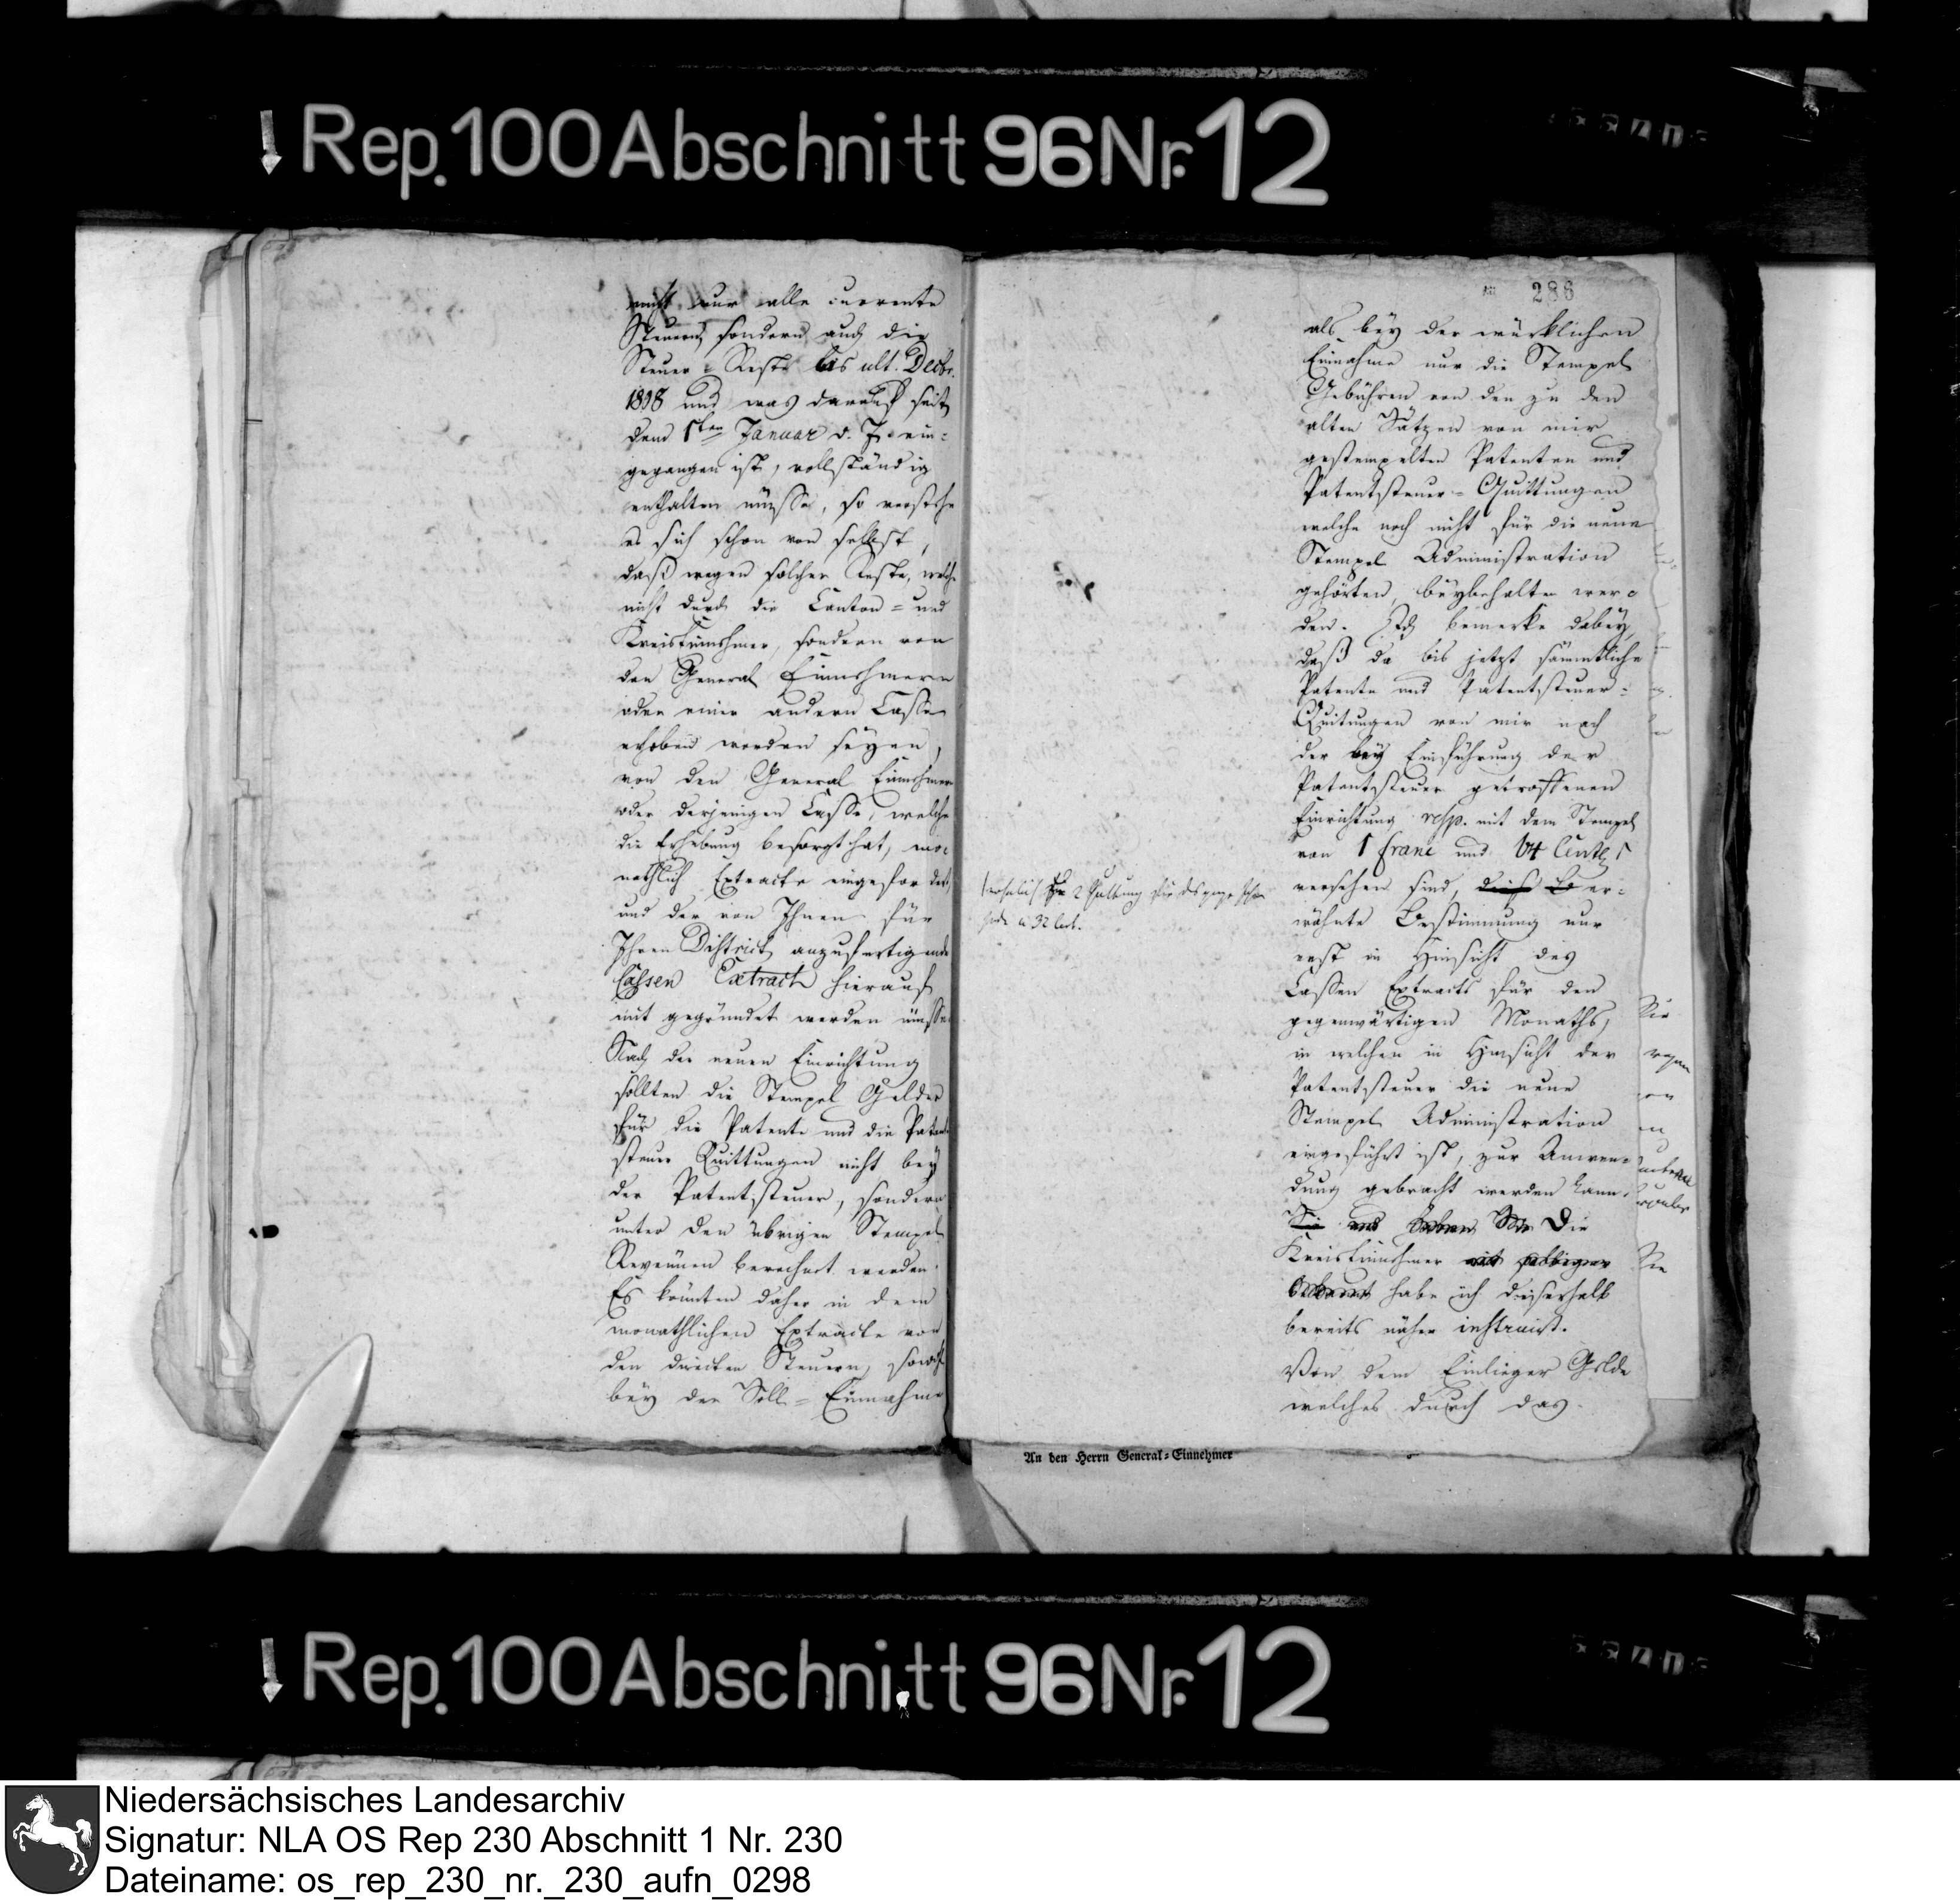 Rep. 100 Abschnitt 96 Nr. 12
nicht nur alle currente
Steuern, sondern auch die
Steuer-Reste bis ult. Decbr.
1808 und was darauf seit
dem 1ten Januar d. J. ein-
gegangen ist, vollständig
enthalten müsse, so verstehe
es sich schon von selbst,
daß wegen solcher Reste, welche
nicht durch die Canton- und
Kreiseinnehmer, sondern von
den General Einnehmern
oder einer andern Casse
erhoben worden seyen,
von den General Einnehmern
oder derjenigen Casse, welche
die Erhebung besorgt hat, mo-
nathlich Extracte eingefordert,
und der von Ihnen für
Ihren District anzufertigende
Cassen Extract hierauf
mit gegründet werden müsse.
Nach der neuen Einrichtung
sollten die Stempel Gelder
für die Patente und die Patent-
steuer Quittungen nicht bey
der Patentsteuer, sondern
unter den übrigen Stempel
Revenüen berechnet werden.
Es könnten daher in dem
monathlichen Extracte von
den directen Steuern, sowohl
bey der Soll-Einnahme
286
als bey der würklichen
Einnahme nur die Stempel
Gebühren von den zu den
alten Sätzen von mir
gestempelten Patenten und
Patentsteuer-Quittungen
welche noch nicht für die neue
Stempel Administration
gehörten, beybehalten wer-
den. Ich bemerke dabey,
daß da bis jetzt sämmtliche
Patente und Patentsteuer-
Quitungen von mir nach
der bey Einführung der
Patentsteuer getroffenen
Einrichtung resp. mit dem Stempel
von 1 Franc und 64 Cent.
versehen sind, er-
wähnte Bestimmung nur
erst in Hinsicht des
Cassen Extracts für den
gegenwärtigen Monaths,
in welchen in Hinsicht der
Patentsteuer die neue
Stempel Administration
eingeführt ist, zur Anwen-
dung gebracht werden kann.
Die
Kreiseinnehmer
habe ich dieserhalb
bereits näher instruirt.
Von dem Einlieger Gelde
welches durch das
à 32 Cent.
Sie
Sie
An den Herrn General-Einnehmer
Rep. 100 Abschnitt 96 Nr. 12
Niedersächsisches Landesarchiv
Signatur: NLA OS Rep 230 Abschnitt 1 Nr. 230
Dateiname: os_rep_230_nr._230_aufn_0298